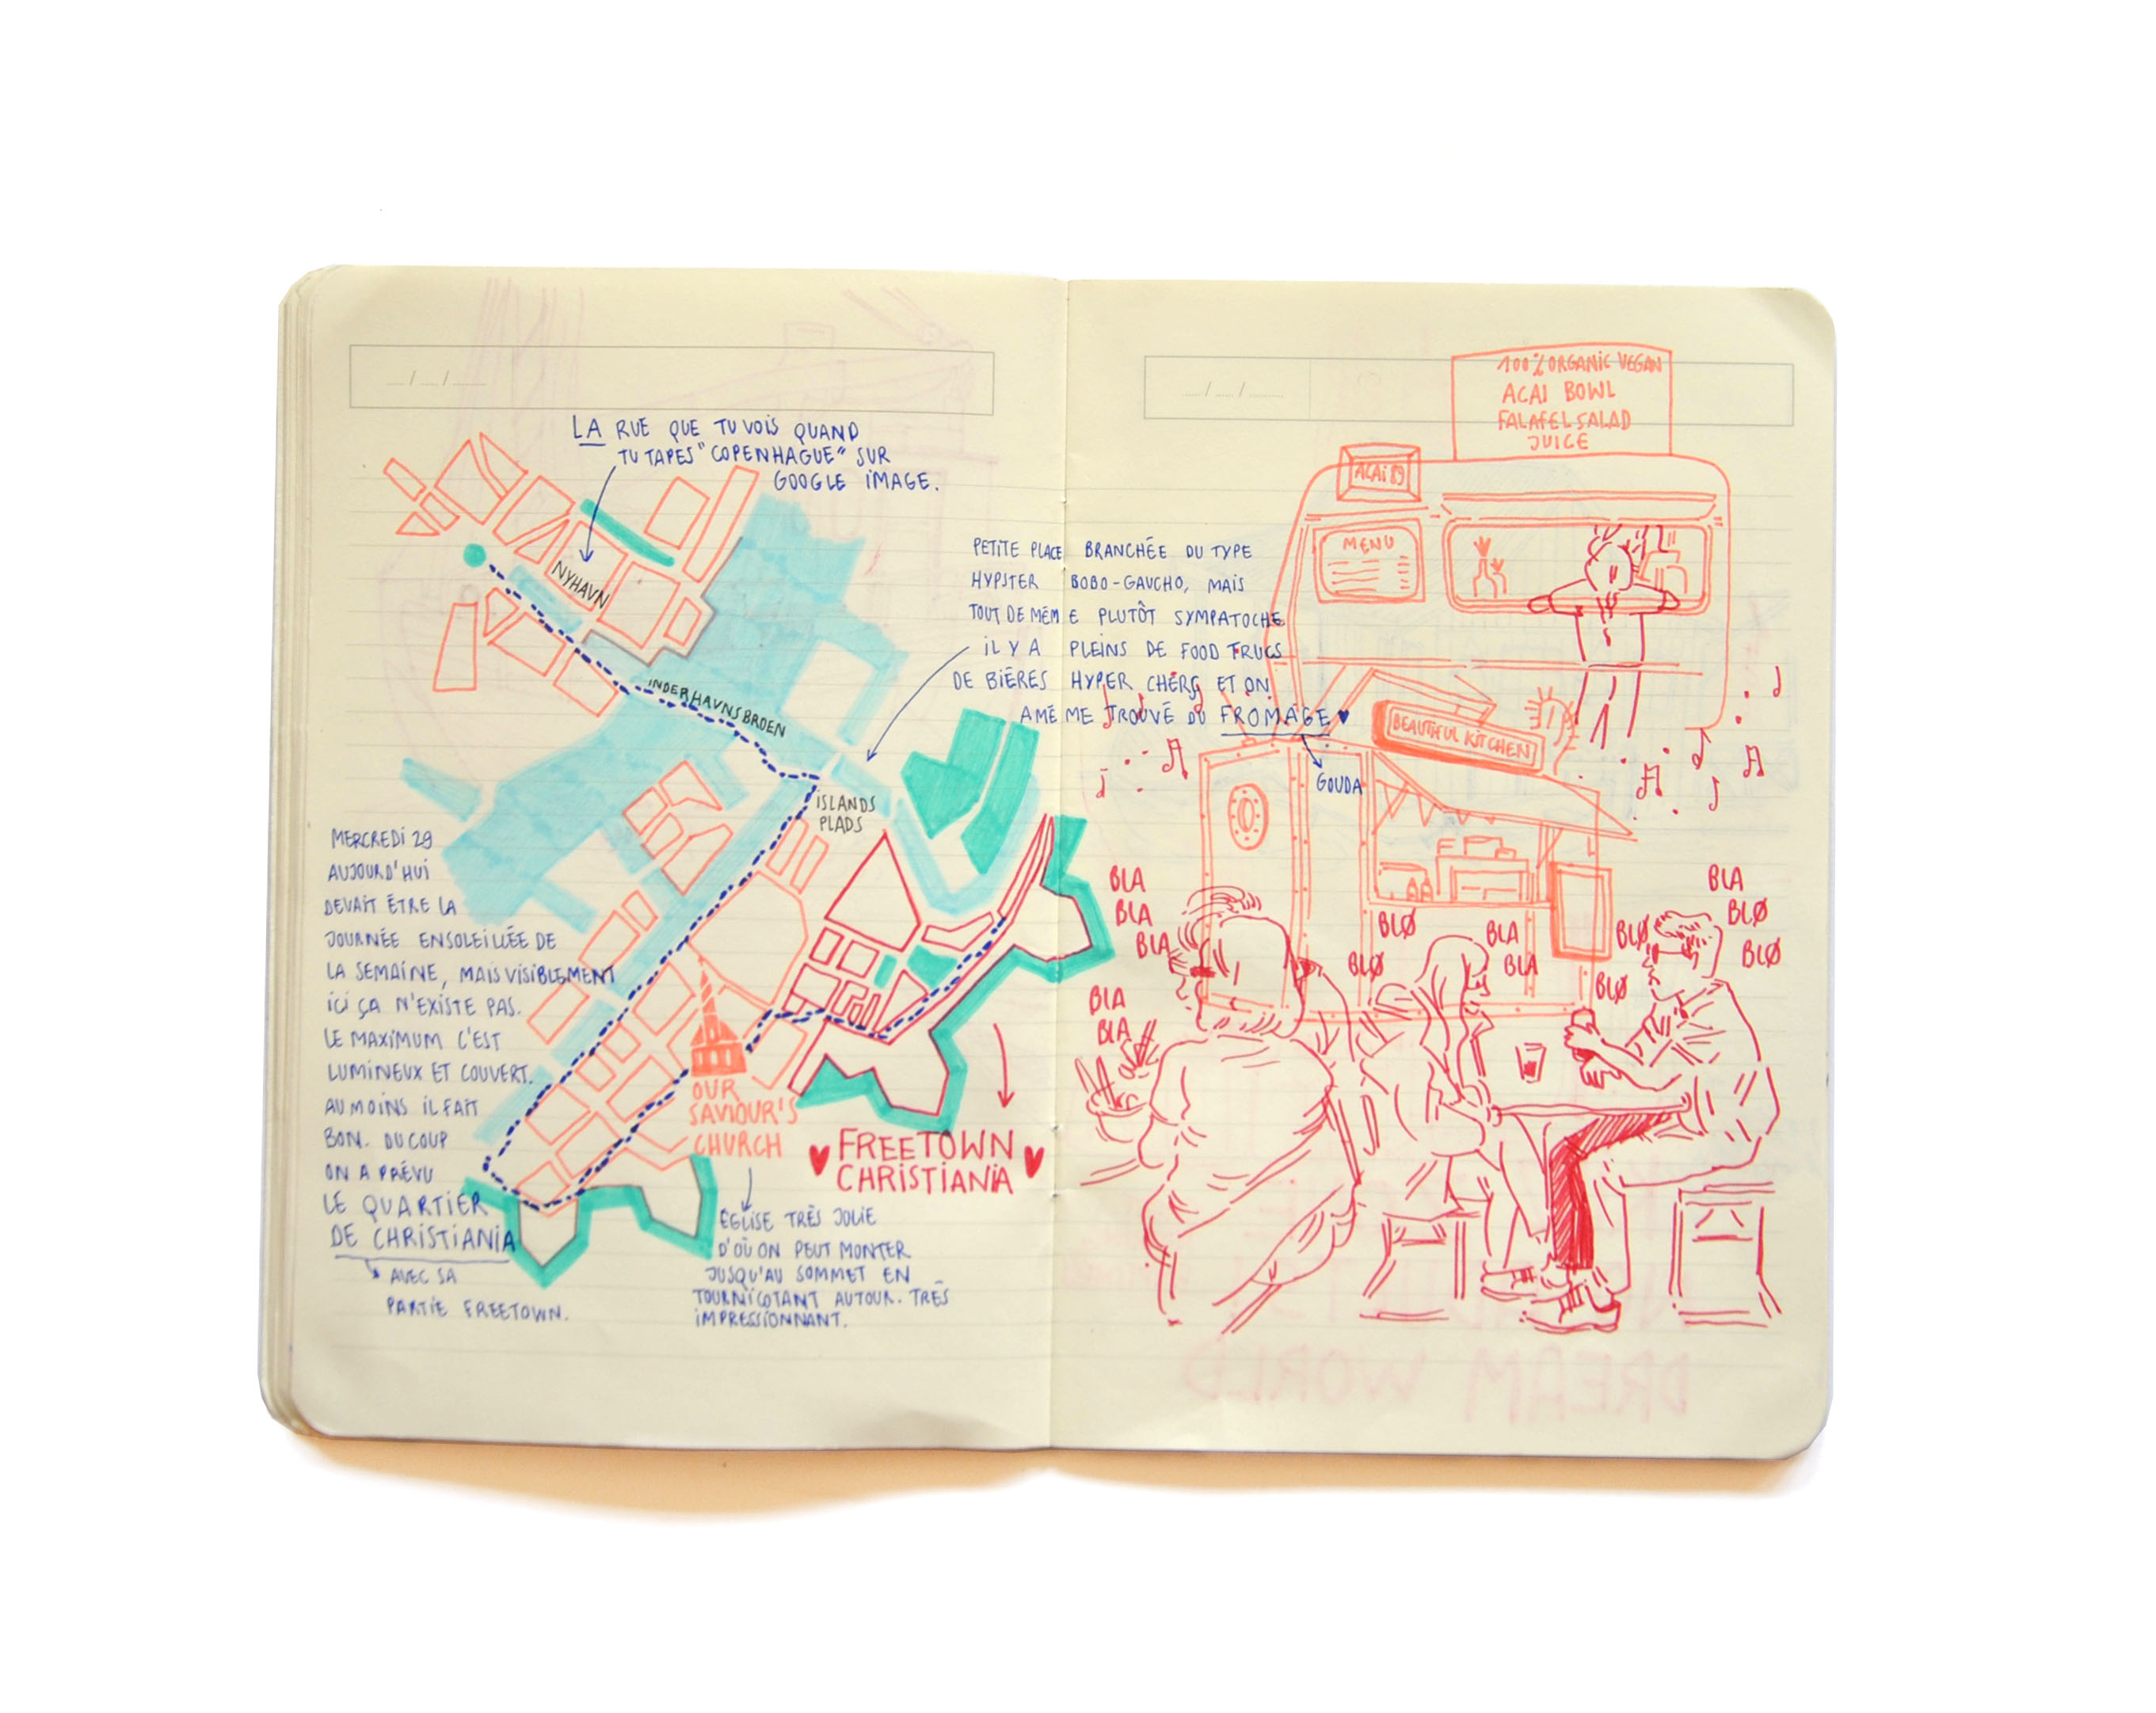 LA RUE QUE TU VOIS QUAND
TU TAPES "COPENHAGUE" SUR
GOOGLE IMAGE.
NYHAVN
INDERHAVNSBROEN
ISLANDS
PLADS
MERCREDI 29
AUJOURD'HUI
DEVAIT ÊTRE LA
JOURNÉE ENSOLEILLÉE DE
LA SEMAINE, MAIS VISIBLEMENT
ICI ÇA N'EXISTE PAS.
LE MAXIMUM C'EST
LUMINEUX ET COUVERT.
AU MOINS IL FAIT
BON. DU COUP
ON A PRÉVU
LE QUARTIER
DE CHRISTIANIA
AVEC SA
PARTIE FREETOWN.
OUR
SAVIOUR'S
CHURCH
♥ FREETOWN ♥
CHRISTIANIA
ÉGLISE TRÈS JOLIE
D'OÙ ON PEUT MONTER
JUSQU'AU SOMMET EN
TOURNICOTANT AUTOUR. TRÈS
IMPRESSIONNANT.
PETITE PLACE BRANCHÉE DU TYPE
HYPSTER BOBO-GAUCHO, MAIS
TOUT DE MÊME PLUTÔT SYMPATOCHE
IL Y A PLEINS DE FOOD TRUCS
DE BIÈRES HYPER CHÈRS ET ON
A MÊME TROUVÉ DU FROMAGE ♥
GOUDA
100% ORGANIC VEGAN
ACAI BOWL
FALAFEL SALAD
JUICE
ACAI 89
MENU
BEAUTIFUL KITCHEN
BLA
BLA
BLA
BLA
BLA
BLØ
BLØ
BLA
BLA
BLØ
BLØ
BLA
BLØ
BLØ
DREAM WORLD